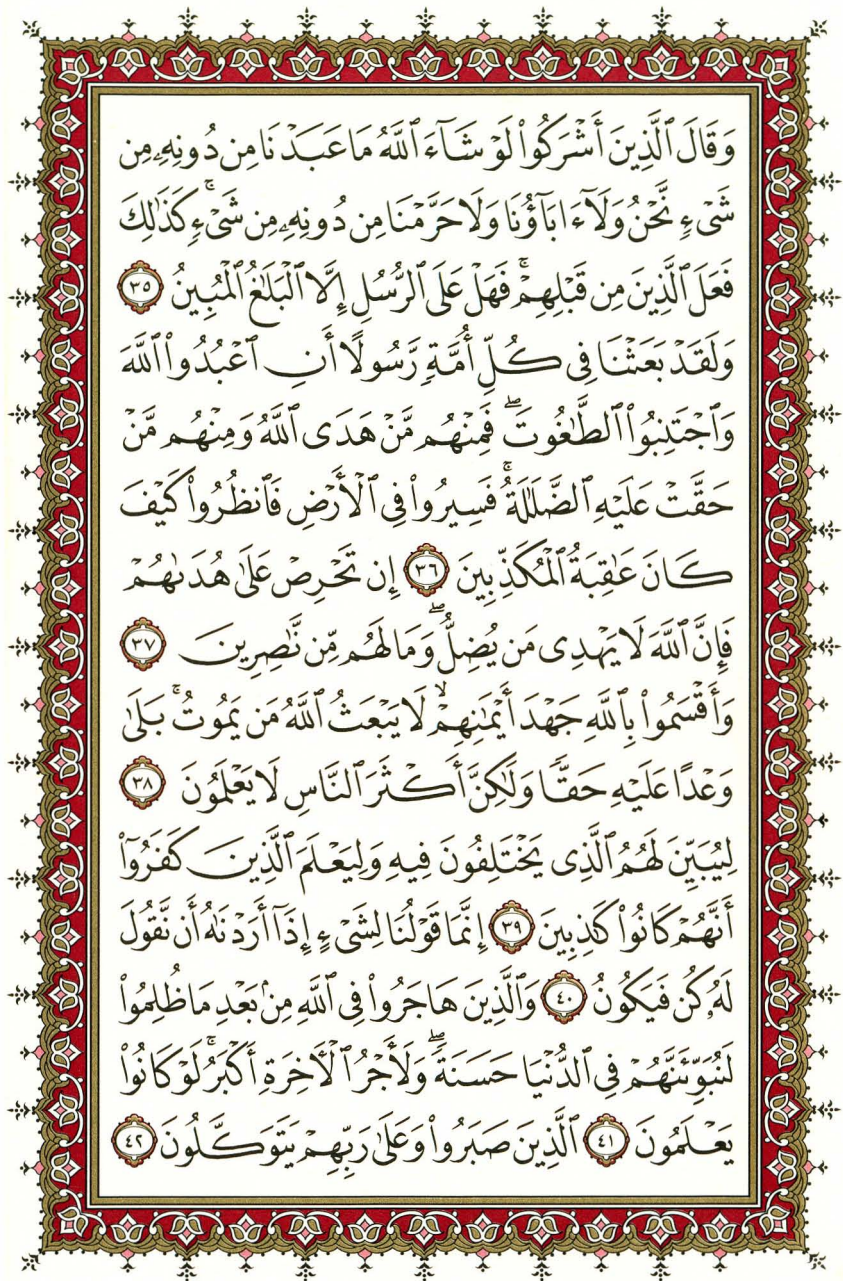 وَقَالَ ٱلَّذِينَ أَشْرَكُوا۟ لَوْ شَآءَ ٱللَّهُ مَا عَبَدْنَا مِن دُونِهِۦ مِن
شَىْءٍ نَّحْنُ وَلَآ ءَابَآؤُنَا وَلَا حَرَّمْنَا مِن دُونِهِۦ مِن شَىْءٍ ۚ كَذَٰلِكَ
فَعَلَ ٱلَّذِينَ مِن قَبْلِهِمْ ۚ فَهَلْ عَلَى ٱلرُّسُلِ إِلَّا ٱلْبَلَٰغُ ٱلْمُبِينُ ٣٥
وَلَقَدْ بَعَثْنَا فِى كُلِّ أُمَّةٍ رَّسُولًا أَنِ ٱعْبُدُوا۟ ٱللَّهَ
وَٱجْتَنِبُوا۟ ٱلطَّٰغُوتَ ۖ فَمِنْهُم مَّنْ هَدَى ٱللَّهُ وَمِنْهُم مَّنْ
حَقَّتْ عَلَيْهِ ٱلضَّلَٰلَةُ ۚ فَسِيرُوا۟ فِى ٱلْأَرْضِ فَٱنظُرُوا۟ كَيْفَ
كَانَ عَٰقِبَةُ ٱلْمُكَذِّبِينَ ٣٦ إِن تَحْرِصْ عَلَىٰ هُدَىٰهُمْ
فَإِنَّ ٱللَّهَ لَا يَهْدِى مَن يُضِلُّ ۖ وَمَا لَهُم مِّن نَّٰصِرِينَ ٣٧
وَأَقْسَمُوا۟ بِٱللَّهِ جَهْدَ أَيْمَٰنِهِمْ ۙ لَا يَبْعَثُ ٱللَّهُ مَن يَمُوتُ ۚ بَلَىٰ
وَعْدًا عَلَيْهِ حَقًّا وَلَٰكِنَّ أَكْثَرَ ٱلنَّاسِ لَا يَعْلَمُونَ ٣٨
لِيُبَيِّنَ لَهُمُ ٱلَّذِى يَخْتَلِفُونَ فِيهِ وَلِيَعْلَمَ ٱلَّذِينَ كَفَرُوٓا۟
أَنَّهُمْ كَانُوا۟ كَٰذِبِينَ ٣٩ إِنَّمَا قَوْلُنَا لِشَىْءٍ إِذَآ أَرَدْنَٰهُ أَن نَّقُولَ
لَهُۥ كُن فَيَكُونُ ٤٠ وَٱلَّذِينَ هَاجَرُوا۟ فِى ٱللَّهِ مِنۢ بَعْدِ مَا ظُلِمُوا۟
لَنُبَوِّئَنَّهُمْ فِى ٱلدُّنْيَا حَسَنَةً ۖ وَلَأَجْرُ ٱلْءَاخِرَةِ أَكْبَرُ ۚ لَوْ كَانُوا۟
يَعْلَمُونَ ٤١ ٱلَّذِينَ صَبَرُوا۟ وَعَلَىٰ رَبِّهِمْ يَتَوَكَّلُونَ ٤٢